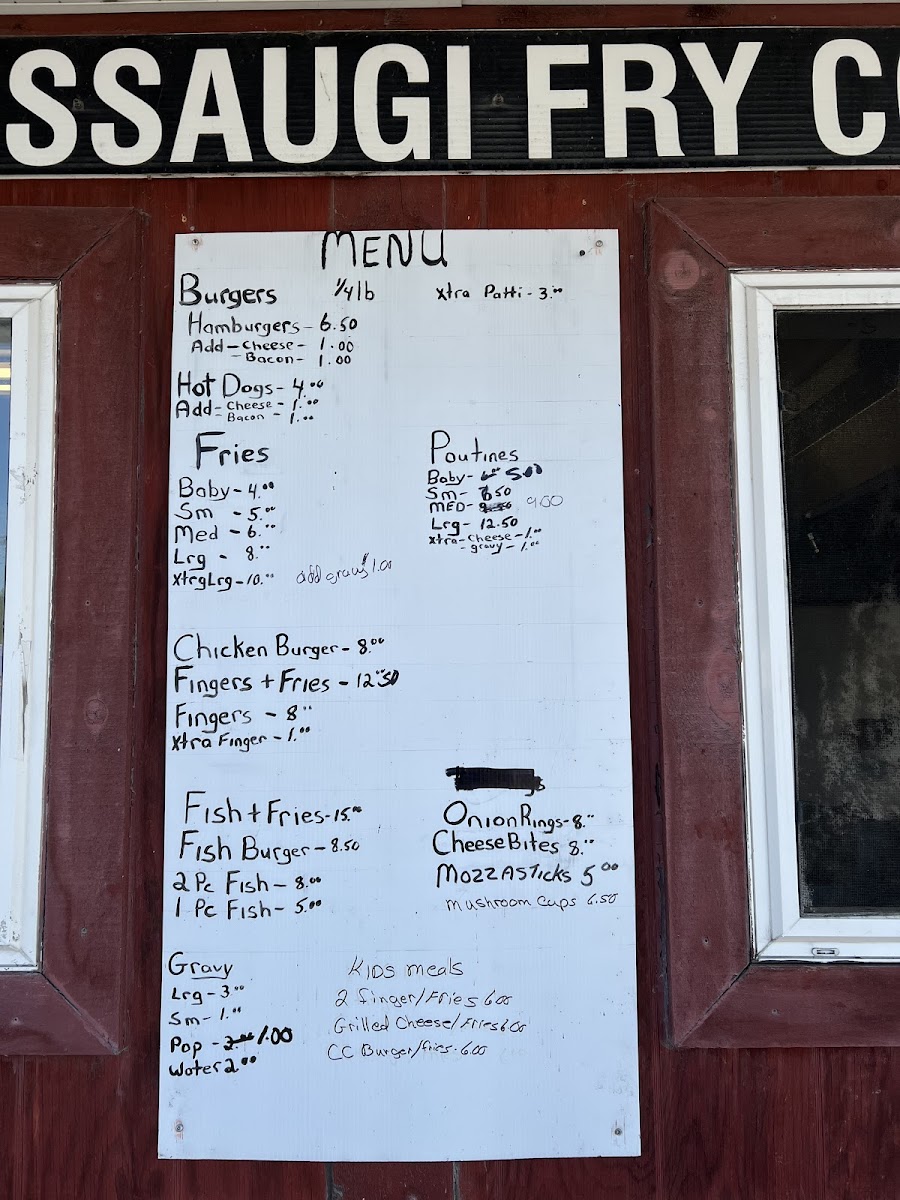 SSAUGI FRY CO
MENU
Burgers 1/4lb Xtra Patti - 3.00
Hamburgers - 6.50
Add - Cheese - 1.00
- Bacon - 1.00
Hot Dogs - 4.00
Add - Cheese - 1.00
Bacon - 1.00
Fries
Baby - 4.00
Sm - 5.00
Med - 6.00
Lrg - 8.00
XtrgLrg - 10.00 add gravy 1.00
Poutines
Baby - 5.00
Sm - 6.50
MED - 9.00
Lrg - 12.50
Xtra - Cheese - 1.00
- gravy - 1.00
Chicken Burger - 8.00
Fingers + Fries - 12.50
Fingers - 8.00
Xtra Finger - 1.00
Fish + Fries - 15.00
Fish Burger - 8.50
2 Pc Fish - 8.00
1 Pc Fish - 5.00
Onion Rings - 8.00
Cheese Bites 8.00
Mozzasticks 5.00
mushroom cups 6.50
Gravy
Lrg - 3.00
Sm - 1.00
Pop - 1.00
Water 2.00
KIDS meals
2 finger/Fries 6.00
Grilled Cheese/Fries 6.00
CC Burger/fries - 6.00